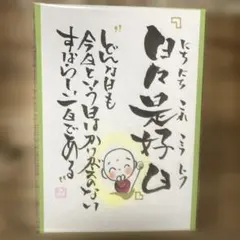 『日々是好日』
にちにち これ こう にち
『どんな日も
今日という日はかけがえのない
すばらしい一日である』